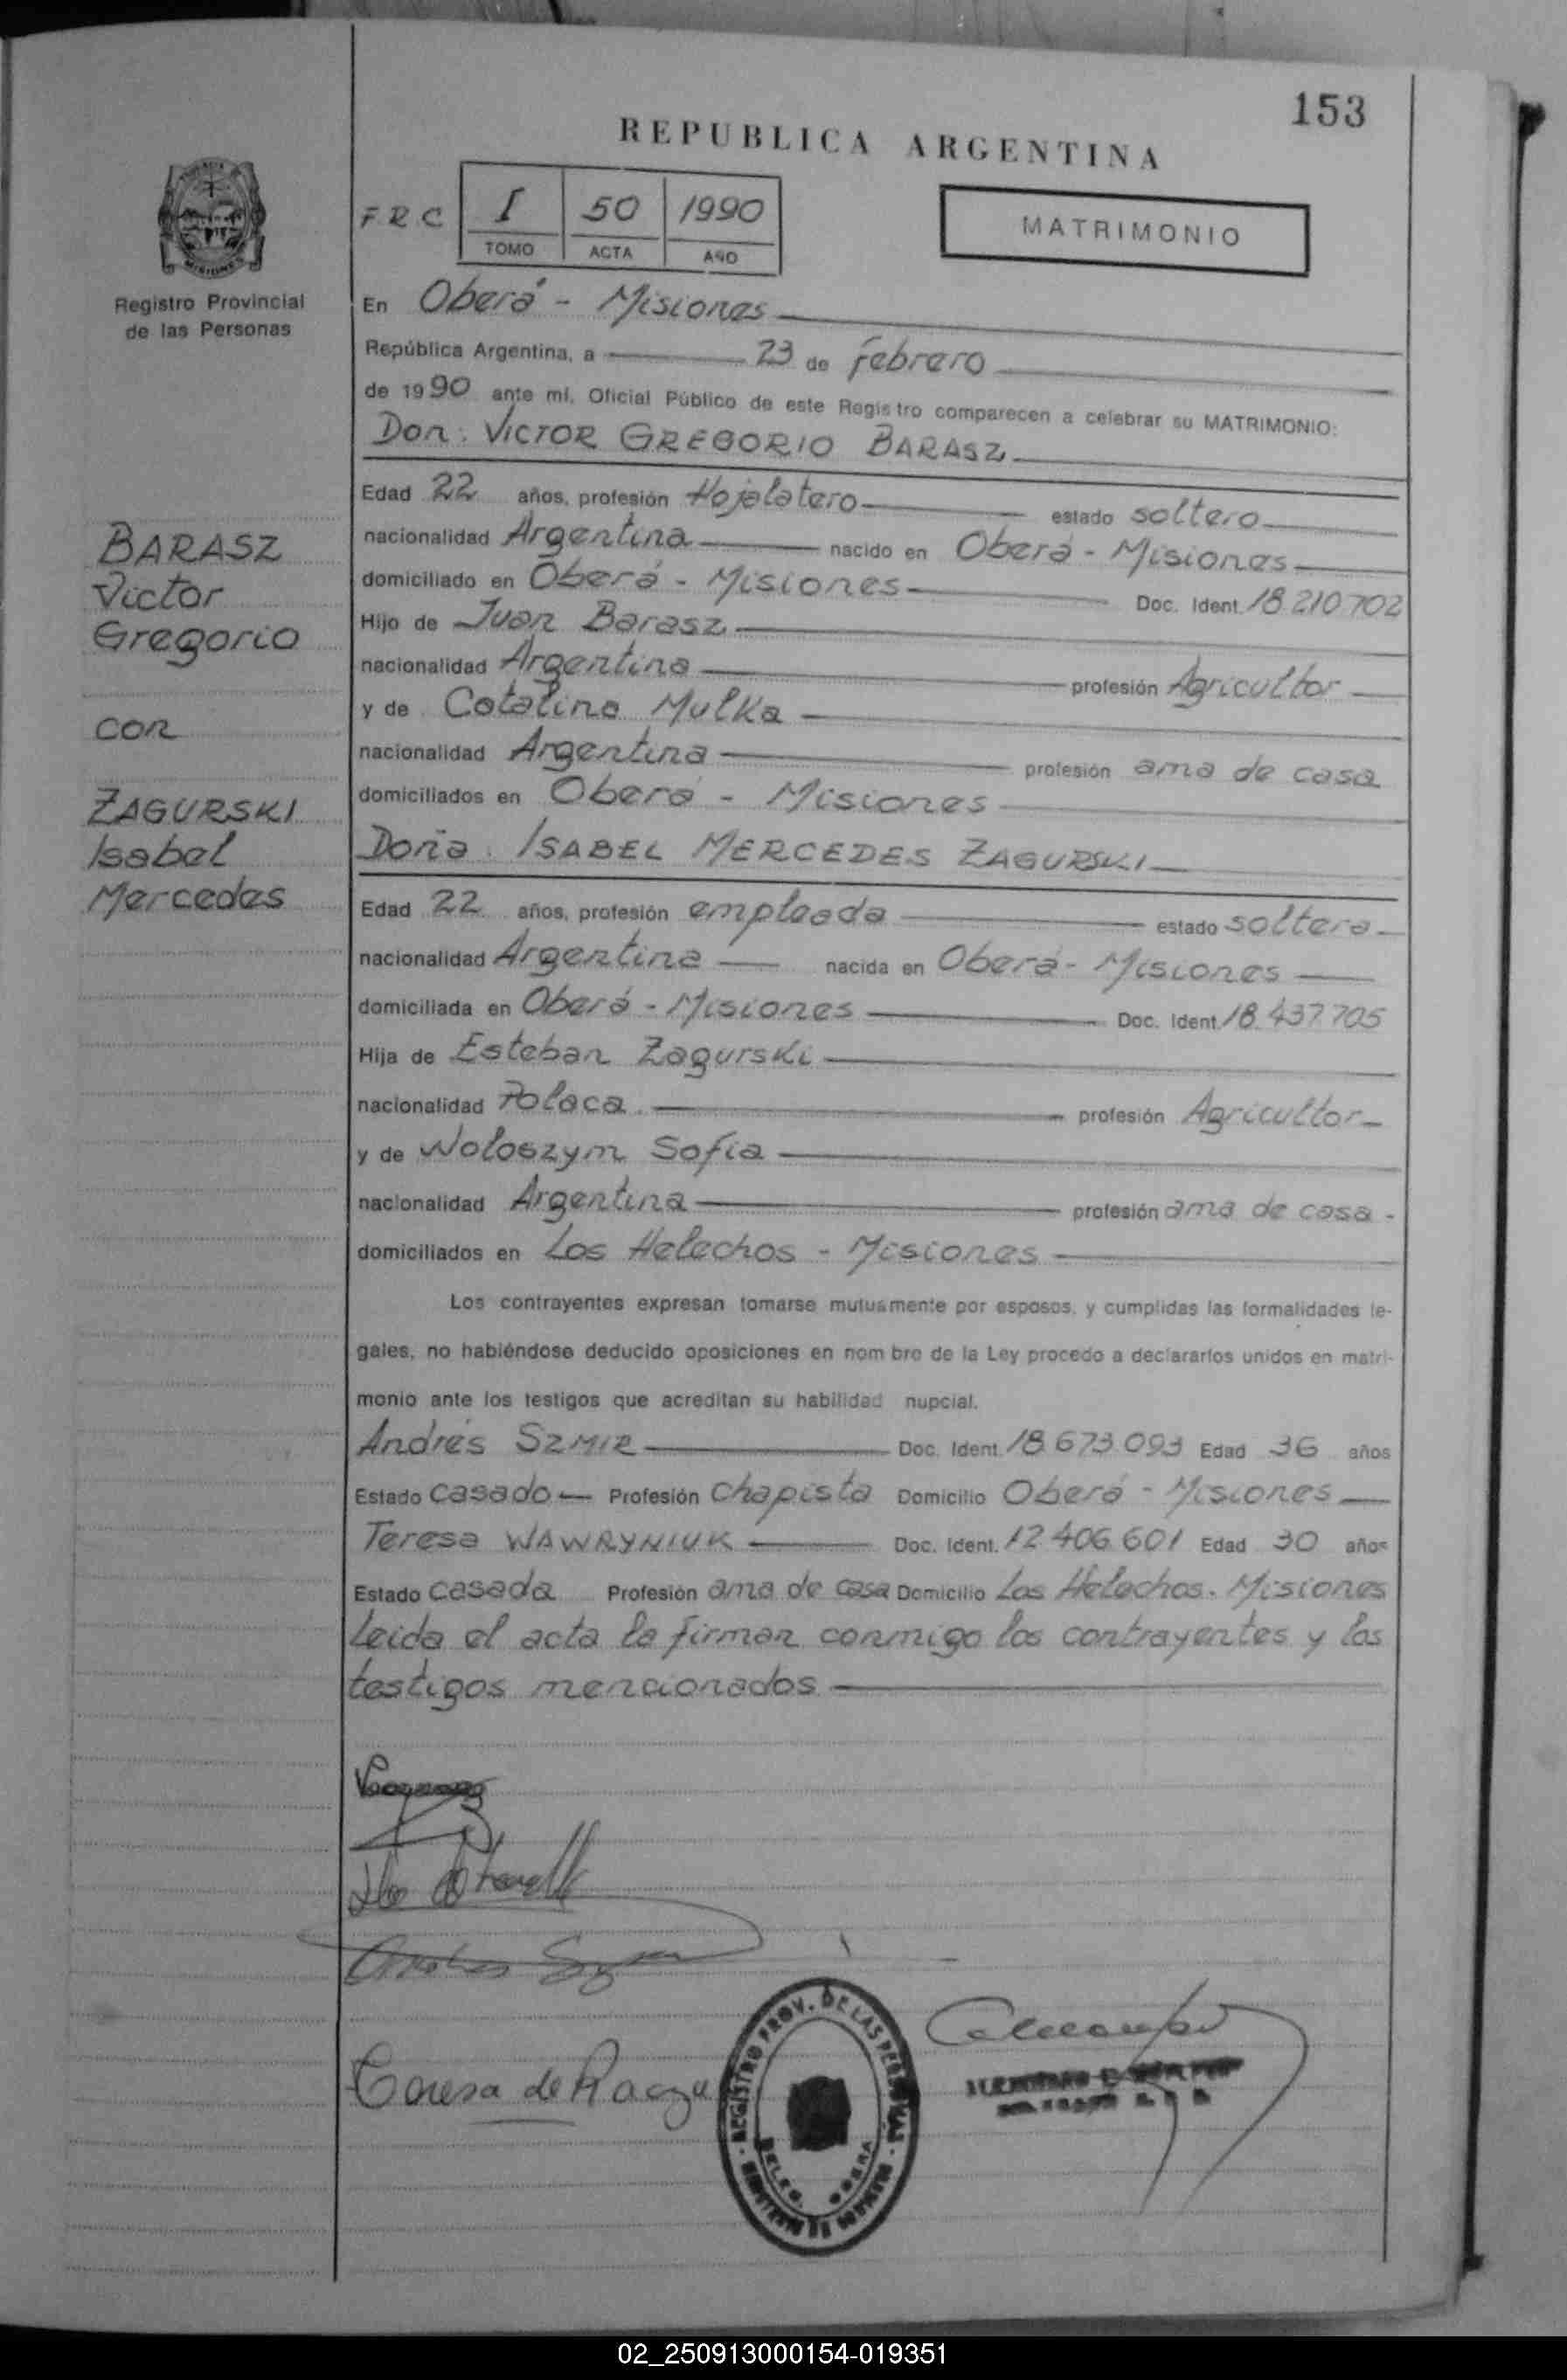 153
REPUBLICA ARGENTINA
F R C I 50 1990
TOMO ACTA AÑO
MATRIMONIO
MISIONES
Registro Provincial
de las Personas
En Oberá - Misiones
República Argentina, a 23 de Febrero
de 1990 ante mí, Oficial Público de este Registro comparecen a celebrar su MATRIMONIO:
Don: VICTOR GREGORIO BARASZ
Edad 22 años, profesión Hojalatero estado soltero
nacionalidad Argentina nacido en Oberá - Misiones
domiciliado en Oberá - Misiones Doc. Ident. 18.210.702
Hijo de Juan Barasz
nacionalidad Argentina profesión Agricultor
y de Catalina Mulka
nacionalidad Argentina profesión ama de casa
domiciliados en Oberá - Misiones
Doña: ISABEL MERCEDES ZAGURSKI
Edad 22 años, profesión empleada estado soltera
nacionalidad Argentina nacida en Oberá - Misiones
domiciliada en Oberá - Misiones Doc. Ident. 18.437.705
Hija de Esteban Zagurski
nacionalidad Polaca profesión Agricultor
y de Woloszym Sofia
nacionalidad Argentina profesión ama de casa -
domiciliados en Los Helechos - Misiones
Los contrayentes expresan tomarse mutuamente por esposos, y cumplidas las formalidades le-
gales, no habiéndose deducido oposiciones en nom bre de la Ley procedo a declararlos unidos en matri-
monio ante los testigos que acreditan su habilidad nupcial.
Andrés SZMIR Doc. Ident. 18.673.093 Edad 36 años
Estado casado Profesión Chapista Domicilio Oberá - Misiones
Teresa WAWRYNIUK Doc. Ident. 12.406.601 Edad 30 años
Estado casada Profesión ama de casa Domicilio Los Helechos. Misiones
Leida el acta la firman conmigo los contrayentes y los
testigos mencionados
BARASZ
Victor
Gregorio
con
ZAGURSKI
Isabel
Mercedes
Teresa de
REGISTRO PROV. DE LAS PERSONAS
DELEG. OBERA
02_250913000154-019351